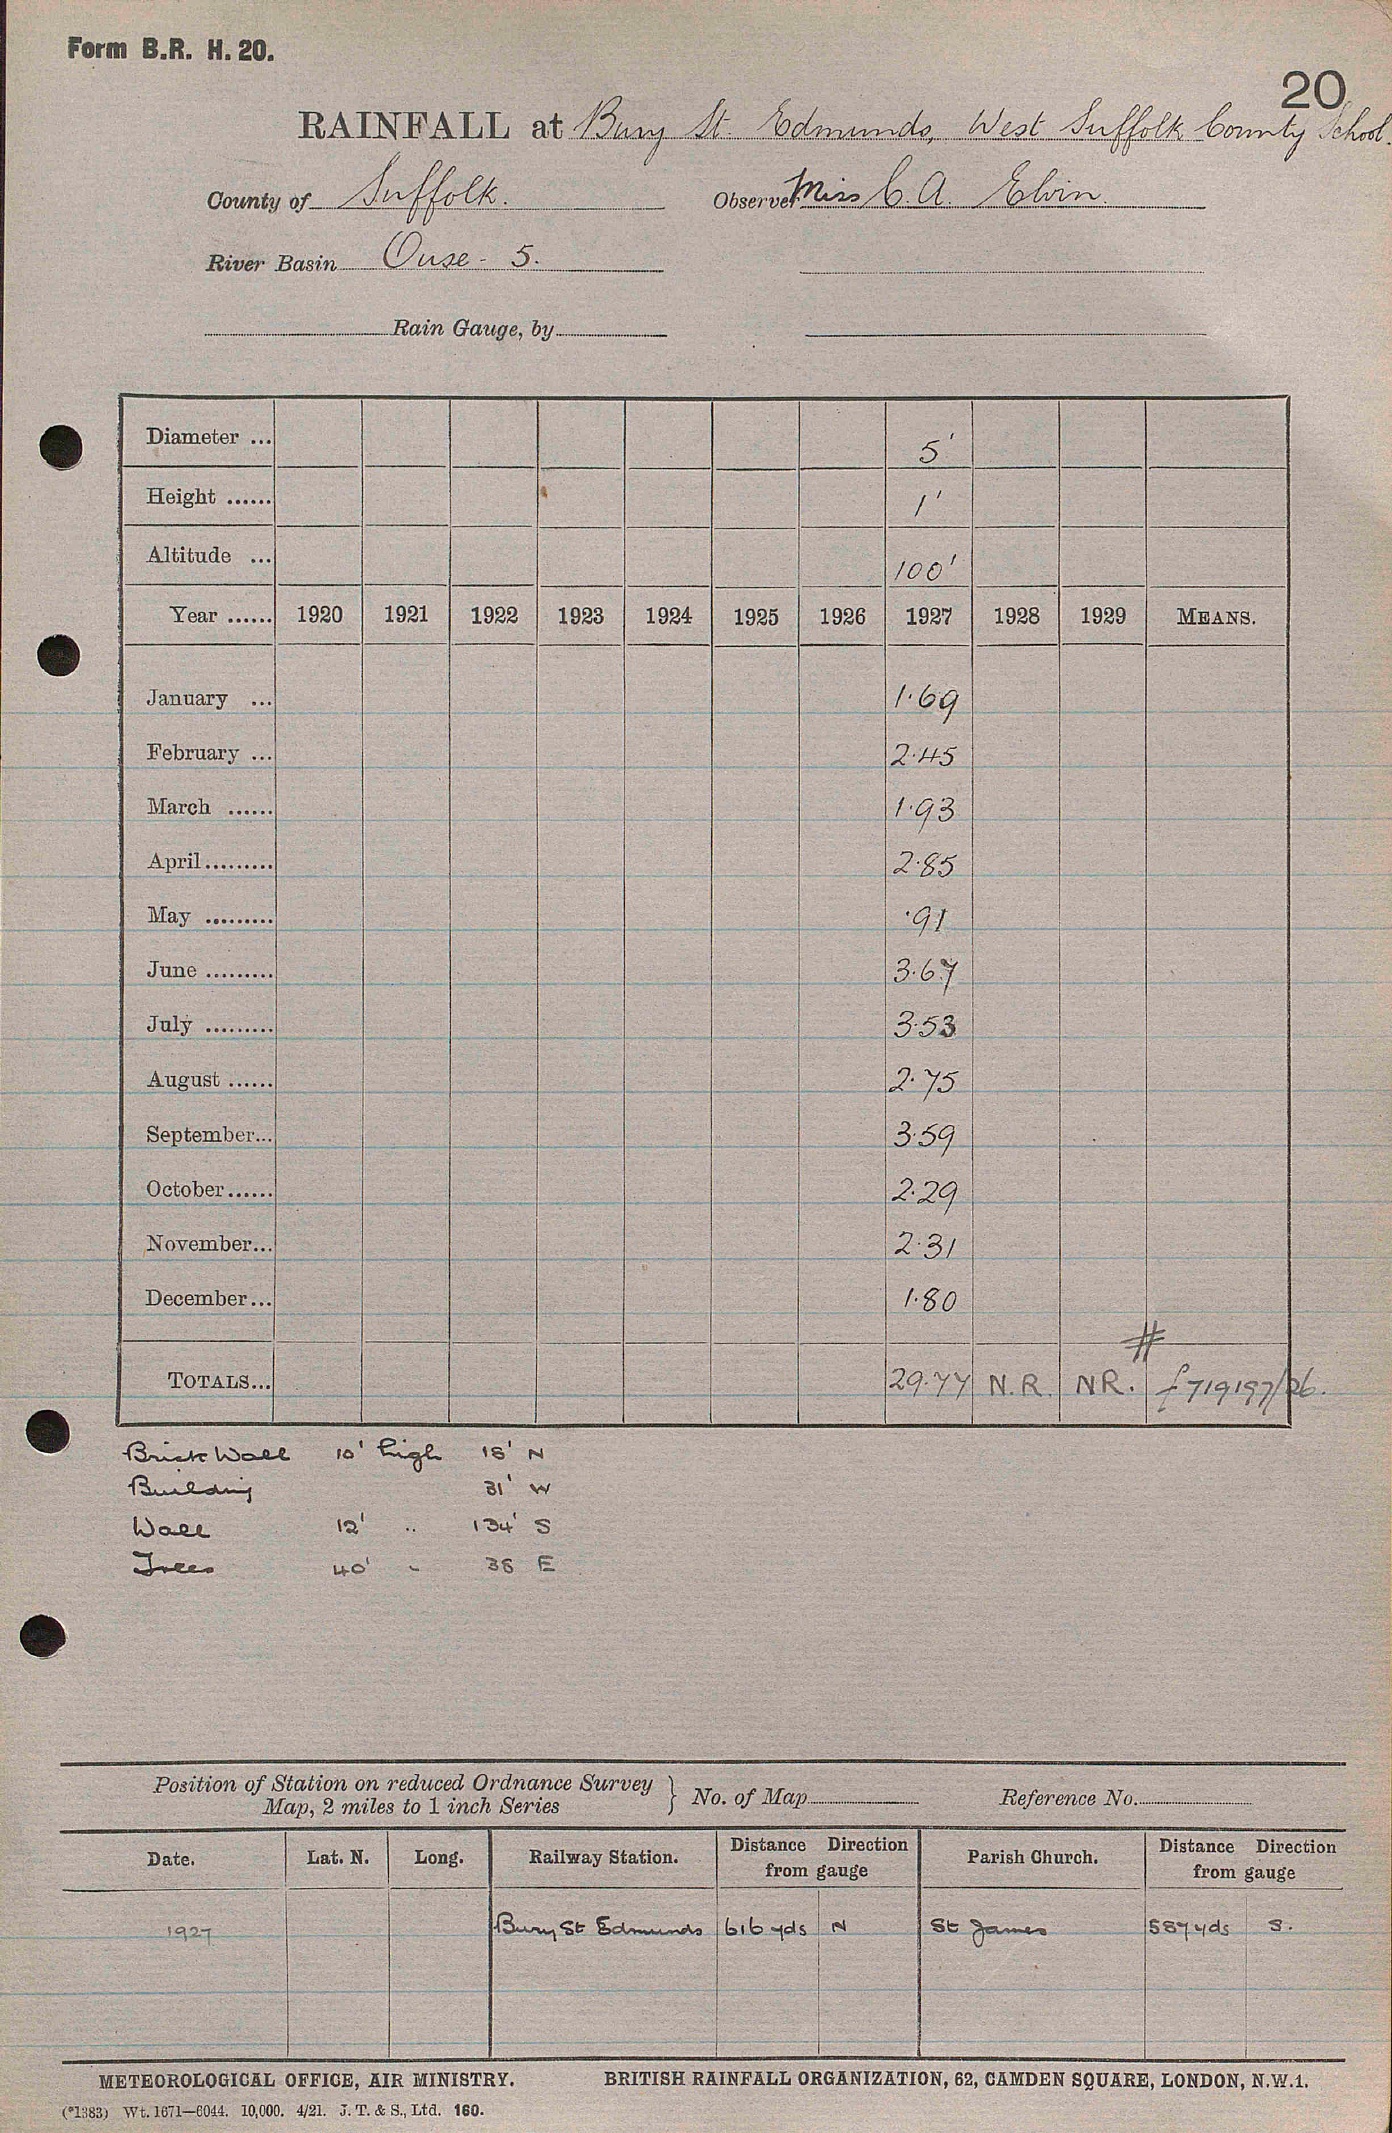 Form B.R. H. 20.
20
RAINFALL at Bury St. Edmunds, West Suffolk County School.
County of Suffolk. Observer Miss C. A. Elvin.
River Basin Ouse - 5.
Rain Gauge, by
Diameter ... 5'
Height ...... 1'
Altitude ... 100'
Year ...... 1920 1921 1922 1923 1924 1925 1926 1927 1928 1929 MEANS.
January ... 1.69
February ... 2.45
March ...... 1.93
April ......... 2.85
May ......... .91
June ......... 3.67
July ......... 3.53
August ...... 2.75
September... 3.59
October...... 2.29
November... 2.31
December... 1.80
#
TOTALS... 29.77 N.R. NR. f 719197/26.
Brick Wall 10' high 18' N
Building 31' W
Wall 12' " 134' S
Trees 40' " 38 E
Position of Station on reduced Ordnance Survey
Map, 2 miles to 1 inch Series } No. of Map Reference No.
Date. Lat. N. Long. Railway Station. Distance Direction from gauge Parish Church. Distance Direction from gauge
1927 Bury St Edmunds 616 yds N St James 587 yds S.
METEOROLOGICAL OFFICE, AIR MINISTRY. BRITISH RAINFALL ORGANIZATION, 62, CAMDEN SQUARE, LONDON, N.W.1.
(*1383) Wt. 1671—6044. 10,000. 4/21. J. T. & S., Ltd. 160.